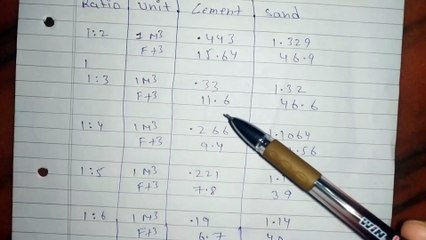 Ratio Unit Cement Sand
1:2 1 M3 .443 1.329
Ft3 15.64 46.9
1
1:3 1 M3 .33 1.32
Ft3 11.6 46.6
1:4 1M3 .266 1.1064
Ft3 9.4 .56
1:5 1M3 .221
Ft3 7.8 39
1:6 1M3 .19 1.14
Ft3 6.7
WIN